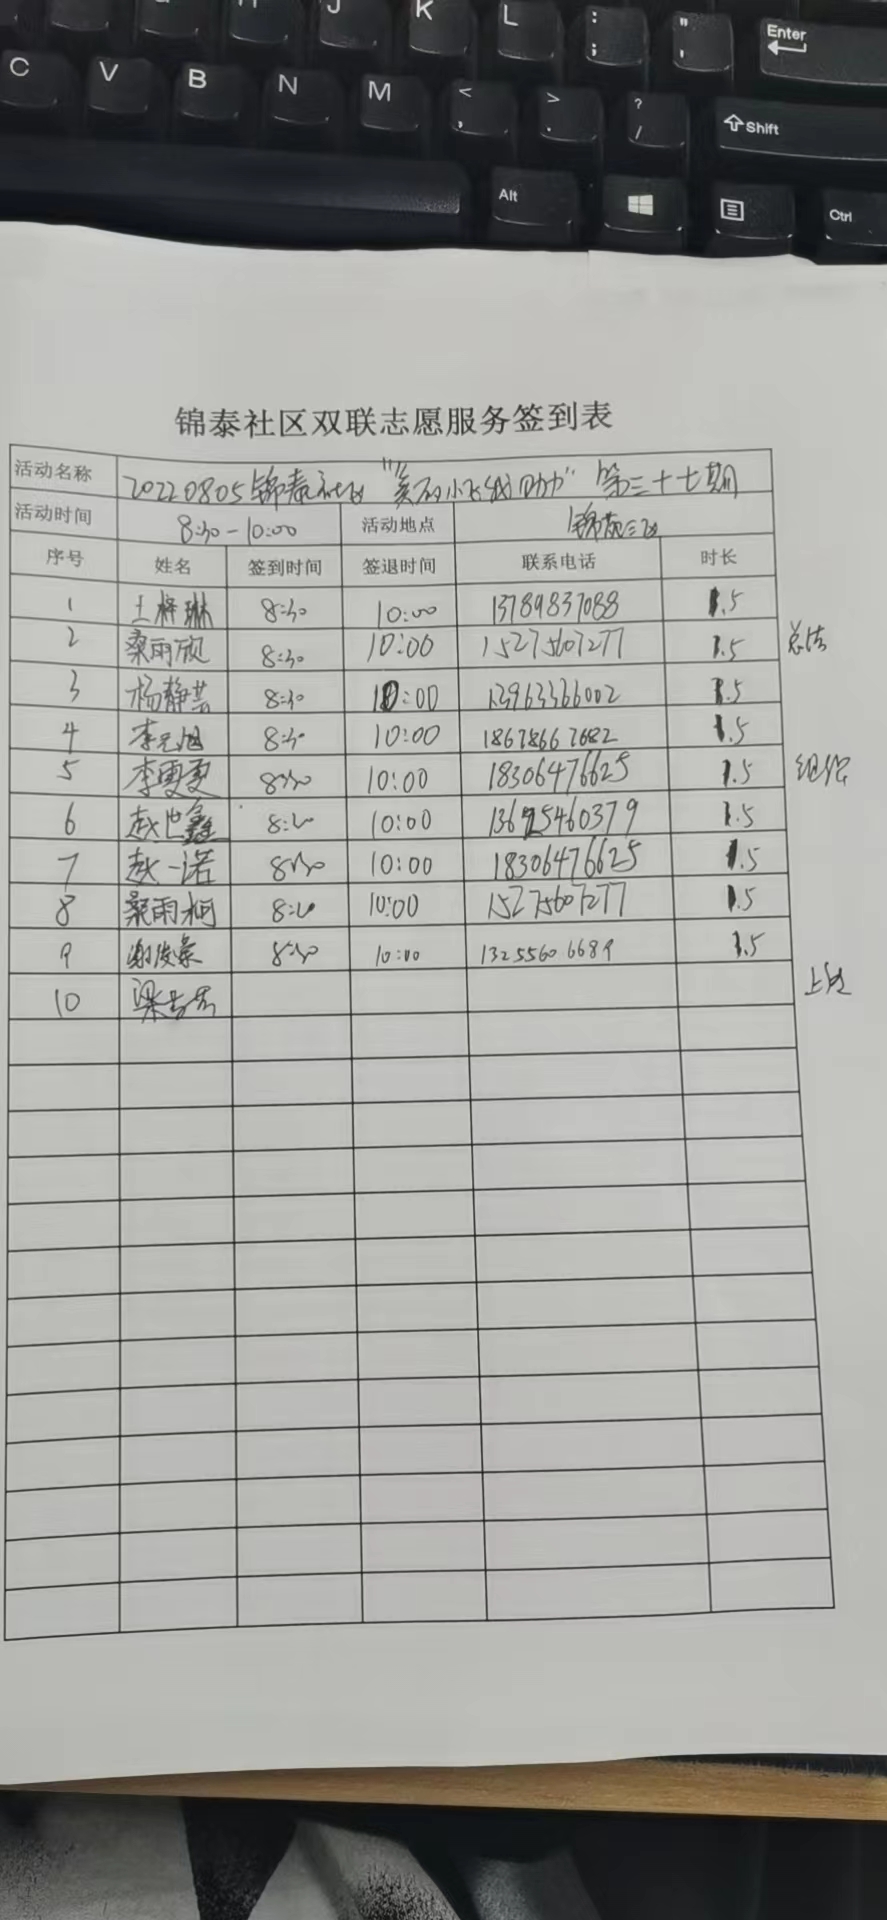 J K L : ; " ' Enter
C V B N M < , > . ? / Shift
Alt Ctrl
锦泰社区双联志愿服务签到表
活动名称 20220805锦泰社区 第三十七期
活动时间 8:30-10:00 活动地点 锦泰社区
序号 姓名 签到时间 签退时间 联系电话 时长
1 王梓琳 8:30 10:00 13789837088 1.5
2 桑雨欣 8:30 10:00 15275607277 1.5 总结
3 杨静芸 8:30 10:00 13963366002 1.5
4 李元旭 8:30 10:00 18678667682 1.5
5 李雯雯 8:30 10:00 18306476625 1.5 组织
6 赵世鑫 8:30 10:00 10:00 1.5
7 赵一诺 8:30 10:00 18306476625 1.5
8 桑雨桐 8:30 10:00 15275607277 1.5
9 谢俊豪 8:30 10:00 13255606689 1.5
10 梁